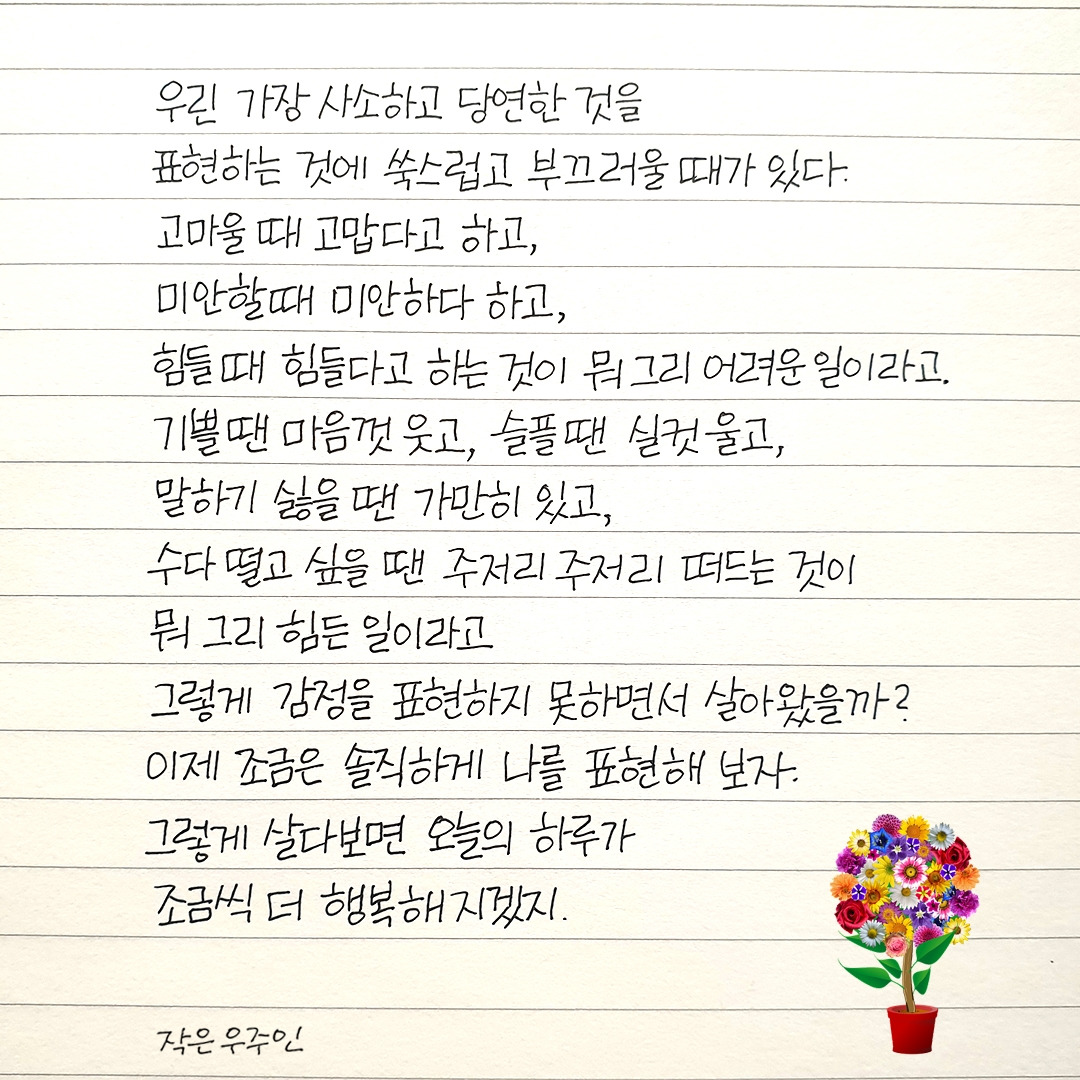 우린 가장 사소하고 당연한 것을
표현하는 것에 쑥스럽고 부끄러울 때가 있다.
고마울 때 고맙다고 하고,
미안할 때 미안하다 하고,
힘들 때 힘들다고 하는 것이 뭐 그리 어려운 일이라고.
기쁠 땐 마음껏 웃고, 슬플 땐 실컷 울고,
말하기 싫을 땐 가만히 있고,
수다 떨고 싶을 땐 주저리 주저리 떠드는 것이
뭐 그리 힘든 일이라고
그렇게 감정을 표현하지 못하면서 살아왔을까?
이제 조금은 솔직하게 나를 표현해 보자.
그렇게 살다보면 오늘의 하루가
조금씩 더 행복해지겠지.
작은우주인